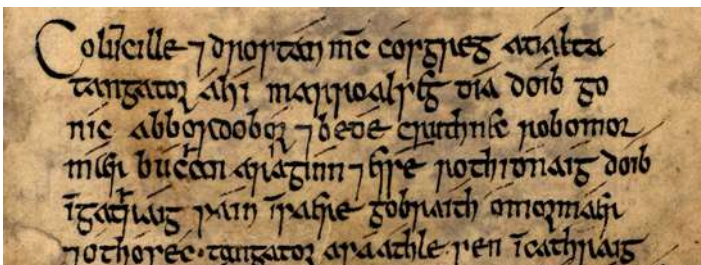 Colūcille ⁊ drostán mc̄ cosgreg adálta
tangator áhi marroalseg día doib go
nic abbordoboir ⁊ béde cruthnec robomor
mær buchan araginn ⁊ essé rothidnaig doib
īgathraig sáin īsaere gobraith omormær
⁊othoséc· tangator asaathle sen īcathraig